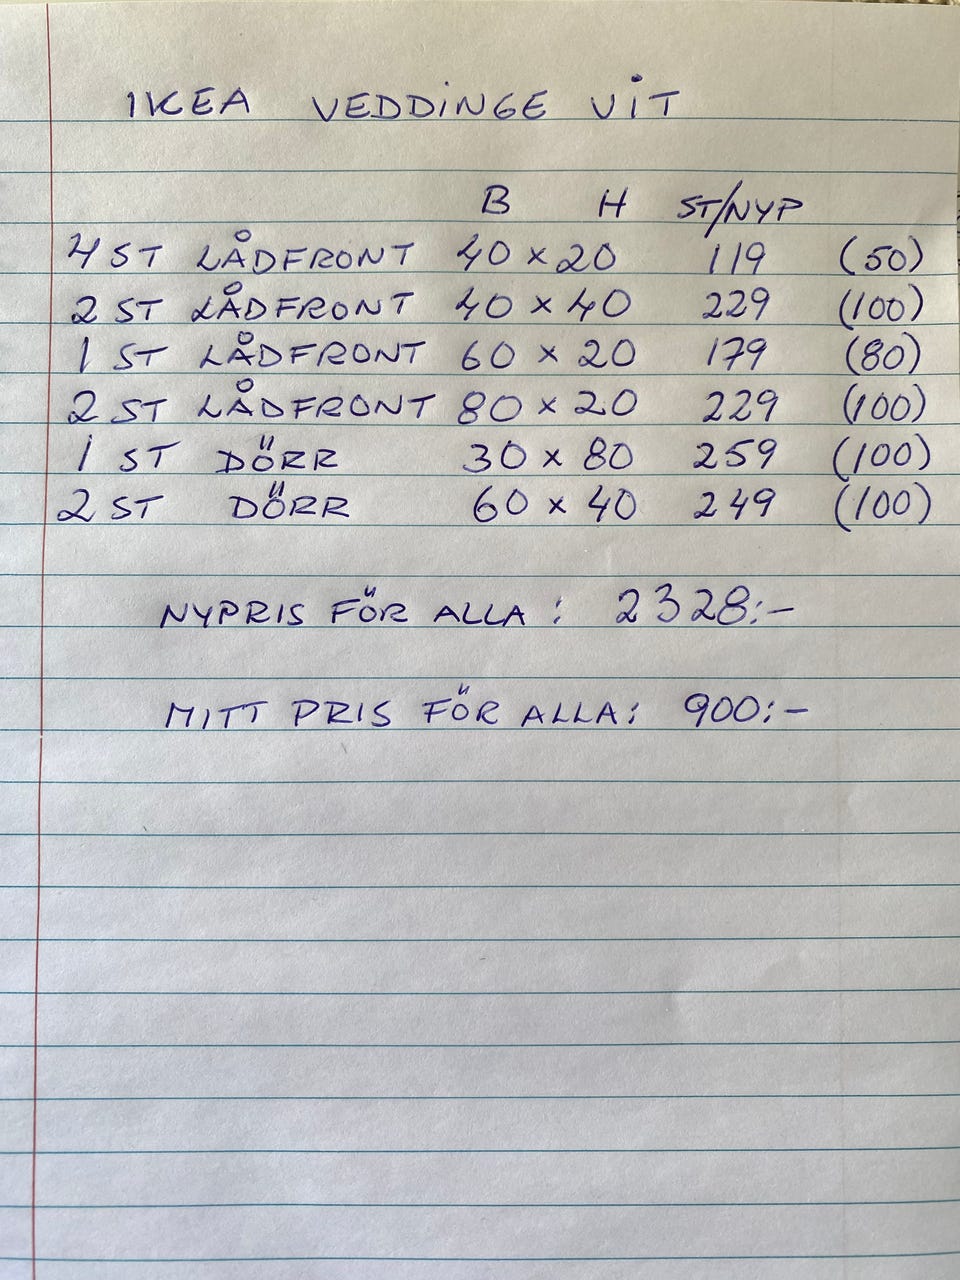 IKEA VEDDINGE VIT
B H ST/NYP
4 ST LÅDFRONT 40 x 20 119 (50)
2 ST LÅDFRONT 40 x 40 229 (100)
1 ST LÅDFRONT 60 x 20 179 (80)
2 ST LÅDFRONT 80 x 20 229 (100)
1 ST DÖRR 30 x 80 259 (100)
2 ST DÖRR 60 x 40 249 (100)
NYPRIS FÖR ALLA: 2328:-
MITT PRIS FÖR ALLA: 900:-